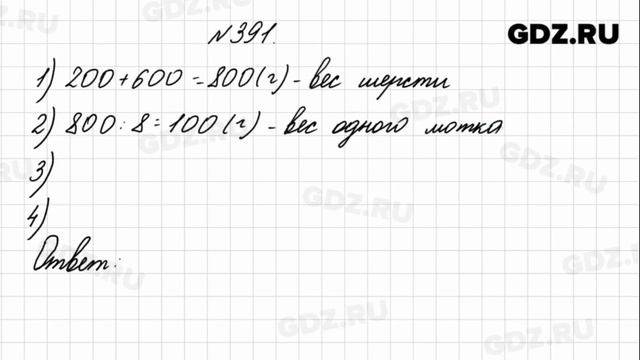 №391.
GDZ.RU
1) 200+600=800(г)-вес шерсти
2) 800:8=100(г)-вес одного мотка
3)
4)
Ответ:
GDZ.RU
GDZ.RU
GDZ.RU
GDZ.RU
GDZ.RU
GDZ.RU
GDZ.RU